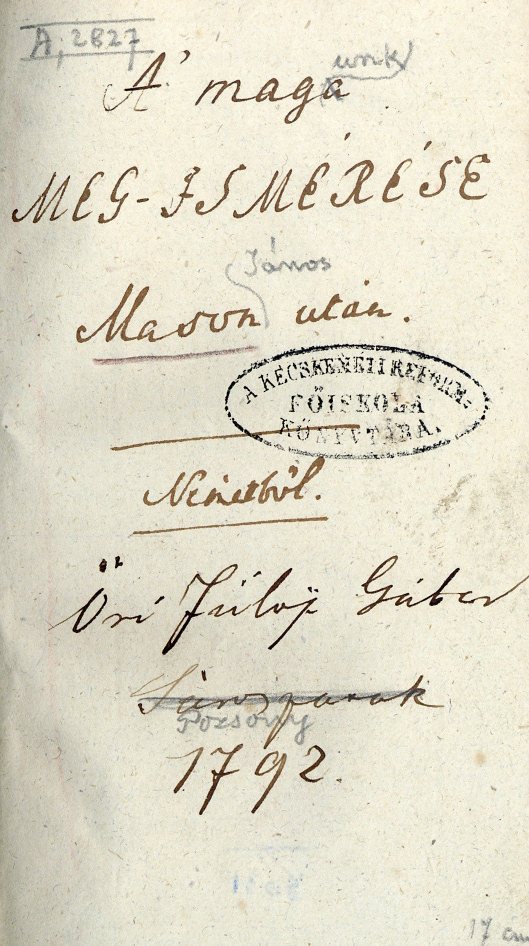 A; 2827
A' maga
unk
MEG-ISMÉRÉSE
János
Mason után.
A KECSKEMÉTI REFORM.
FŐISKOLA
KÖNYVTÁRA.
Németből.
Őri Fülöp Gábor
Sárospatak
Pozsony
1792.
17 cm